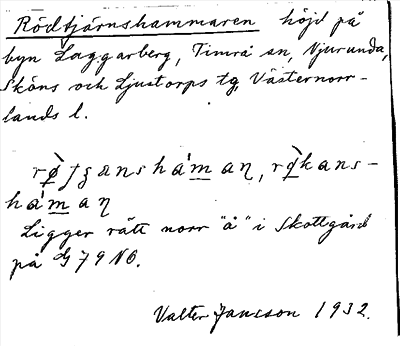 Rödtjärnshammaren höjd på
byn Laggarberg, Timrå sn, Njurunda,
Sköns och Ljustorps tg, Västernorr-
lands l.
hamaɳ
Ligger rätt norr "å" i Skottgård
på G 79 NO.
Valter Jansson 1932.